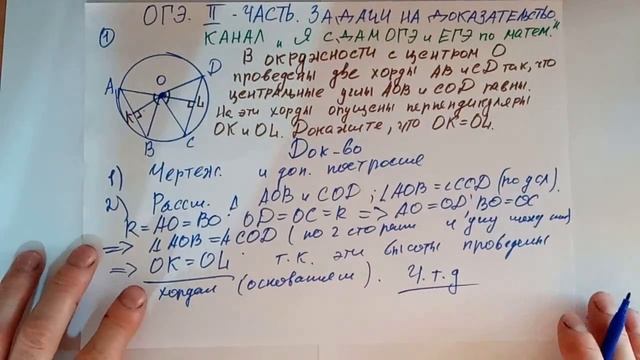 ОГЭ. II - ЧАСТЬ. ЗАДАЧИ НА ДОКАЗАТЕЛЬСТВО.
КАНАЛ „Я СДАМ ОГЭ И ЕГЭ по матем."
1
В окружности с центром О
проведены две хорды АВ и CD так, что
центральные углы АОВ и COD равны.
На эти хорды опущены перпендикуляры
ОК и OL. Докажите, что OK=OL.
A
B
C
D
O
K
L
Док-во
1) Чертеж. и доп. построение
2) Рассм. Δ AOB и COD; ∠AOB=∠COD (по усл).
R=AO=BO; OD=OC=R => AO=OD; BO=OC
=> ΔAOB=ΔCOD (по 2 сторонам и углу между ним)
=> OK=OL, т.к. эти высоты проведены
хордам (основаниям). Ч.т.д